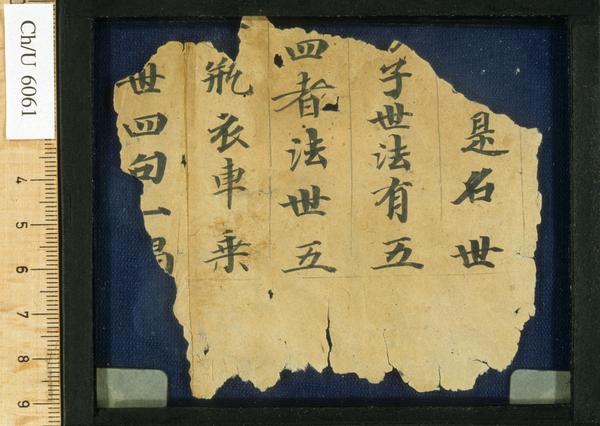 是名世
子世法有五
四者法世五
瓶衣車乘
世四句一偈
Ch/U 6061
4
5
6
7
8
9